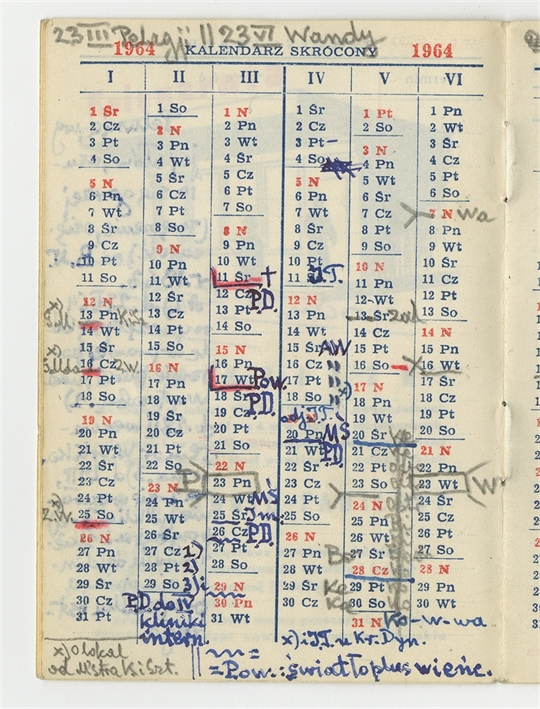 23 III Pelagji || 23 VI Wandy
1964 KALENDARZ SKRÓCONY 1964
I II III IV V VI
1 Śr
2 Cz
3 Pt
4 So
5 N
6 Pn
7 Wt
8 Śr
9 Cz
10 Pt
11 So
12 N
13 Pn
14 Wt
15 Śr
16 Cz
17 Pt
18 So
19 N
20 Pn
21 Wt
22 Śr
23 Cz
24 Pt
25 So
26 N
27 Pn
28 Wt
29 Śr
30 Cz
31 Pt
x)
x)
Z.W.
Z.W.
x) O lokal
1 So
2 N
3 Pn
4 Wt
5 Śr
6 Cz
7 Pt
8 So
9 N
10 Pn
11 Wt
12 Śr
13 Cz
14 Pt
15 So
16 N
17 Pn
18 Wt
19 Śr
20 Cz
21 Pt
22 So
23 N
24 Pn
25 Wt
26 Śr
27 Cz 1)
28 Pt 2)
29 So 3) i
P.D. do IV
kliniki
intern.
1 N
2 Pn
3 Wt
4 Śr
5 Cz
6 Pt
7 So
8 N
9 Pn
10 Wt
11 Śr †
12 Cz P.D.
13 Pt
14 So
15 N
16 Pn
17 Wt Pow.
18 Śr P.D.
19 Cz
20 Pt
21 So
22 N
P 23 Pn
24 Wt MŚ
25 Śr Im.
26 Cz P.D.
27 Pt
28 So
29 N
30 Pn
31 Wt
1 Śr
2 Cz
3 Pt
4 So
5 N
6 Pn
7 Wt
8 Śr
9 Cz
10 Pt
11 So J.T.
12 N
13 Pn
14 Wt
15 Śr AW
16 Cz "
17 Pt "
18 So "
19 N
20 Pn MŚ
21 Wt P.D.
22 Śr
23 Cz
24 Pt
25 So
26 N
27 Pn
28 Wt
29 Śr
30 Cz
x) i J.T. u Kr. Dyn.
1 Pt
2 So
3 N
4 Pn
5 Wt
6 Śr
7 Cz
8 Pt
9 So
10 N
11 Pn
12 Wt
13 Śr
14 Cz
15 Pt
16 So
17 N
18 Pn
19 Wt
20 Śr
21 Cz
22 Pt
23 So
24 N
25 Pn
26 Wt
27 Śr
28 Cz
29 Pt
30 So
31 N Ko-w-wa
1 Pn
2 Wt
3 Śr
4 Cz
5 Pt
6 So
7 N Wa
8 Pn
9 Wt
10 Śr
11 Cz
12 Pt
13 So
14 N
15 Pn
16 Wt
17 Śr
18 Cz
19 Pt
20 So
21 N
22 Pn
23 Wt W
24 Śr
25 Cz
26 Pt
27 So
28 N
29 Pn
30 Wt
= Pow.: światło plus wieńc.